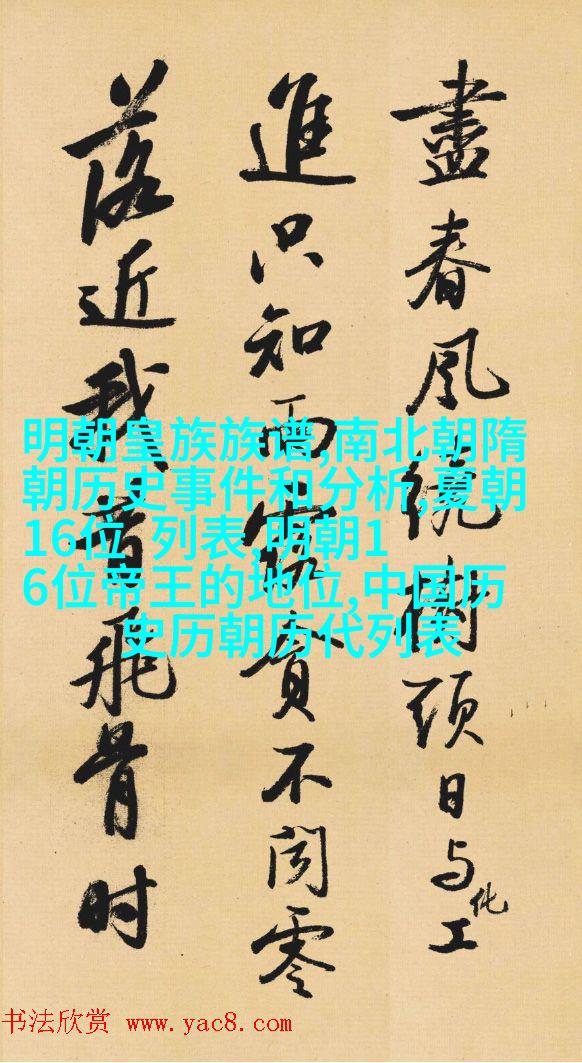 盡春風繞樹頭日与化工
進只知雨露貪不聞零
落近我昔飛骨时
明朝皇族族谱,南北朝隋
朝历史事件和分析,夏朝
16位 列表 明朝1
6位帝王的地位,中国历
史历朝历代列表
书法欣赏 www.yac8.com